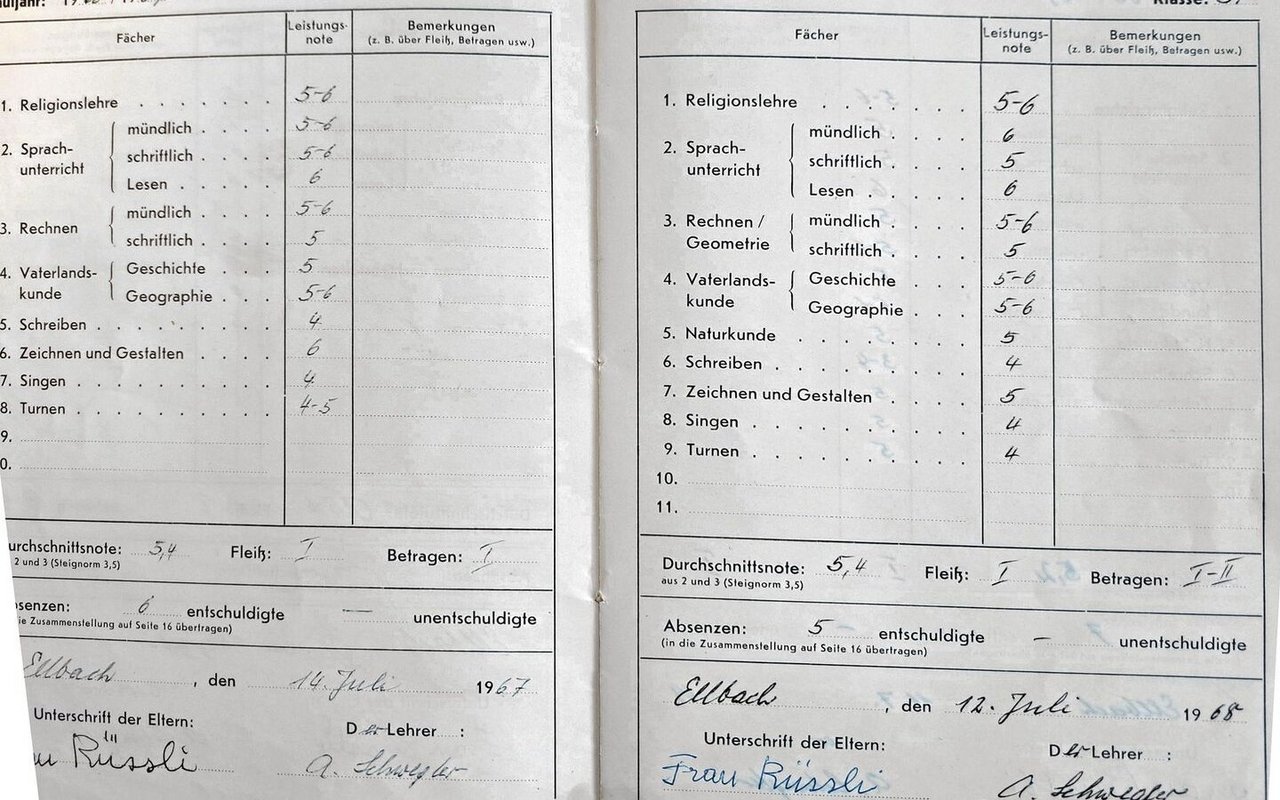 Fächer Leistungs-note Bemerkungen
(z. B. über Fleiß, Betragen usw.)
1. Religionslehre 5-6
2. Sprach-unterricht mündlich 5-6
schriftlich 5-6
Lesen 6
3. Rechnen mündlich 5-6
schriftlich 5
4. Vaterlands-kunde Geschichte 5
Geographie 5-6
5. Schreiben 4
6. Zeichnen und Gestalten 6
7. Singen 4
8. Turnen 4-5
9.
0.
urchschnittsnote: 5,4 Fleiß: I Betragen: I
2 und 3 (Steignorm 3,5)
bsenzen: 6 entschuldigte — unentschuldigte
ie Zusammenstellung auf Seite 16 übertragen)
Ellbach, den 14. Juli 1967
Unterschrift der Eltern: Der Lehrer :
Rüssli A. Schwegler
Klasse:
Fächer Leistungs-note Bemerkungen
(z. B. über Fleiß, Betragen usw.)
1. Religionslehre 5-6
2. Sprach-unterricht mündlich 6
schriftlich 5
Lesen 6
3. Rechnen / Geometrie mündlich 5-6
schriftlich 5
4. Vaterlands-kunde Geschichte 5-6
Geographie 5-6
5. Naturkunde 5
6. Schreiben 4
7. Zeichnen und Gestalten 5
8. Singen 4
9. Turnen 4
10.
11.
Durchschnittsnote: 5,4 Fleiß: I Betragen: I-II
aus 2 und 3 (Steignorm 3,5)
Absenzen: 5 entschuldigte — unentschuldigte
(in die Zusammenstellung auf Seite 16 übertragen)
Ellbach, den 12. Juli 1968
Unterschrift der Eltern: Der Lehrer :
Frau Rüssli A. Schwegler